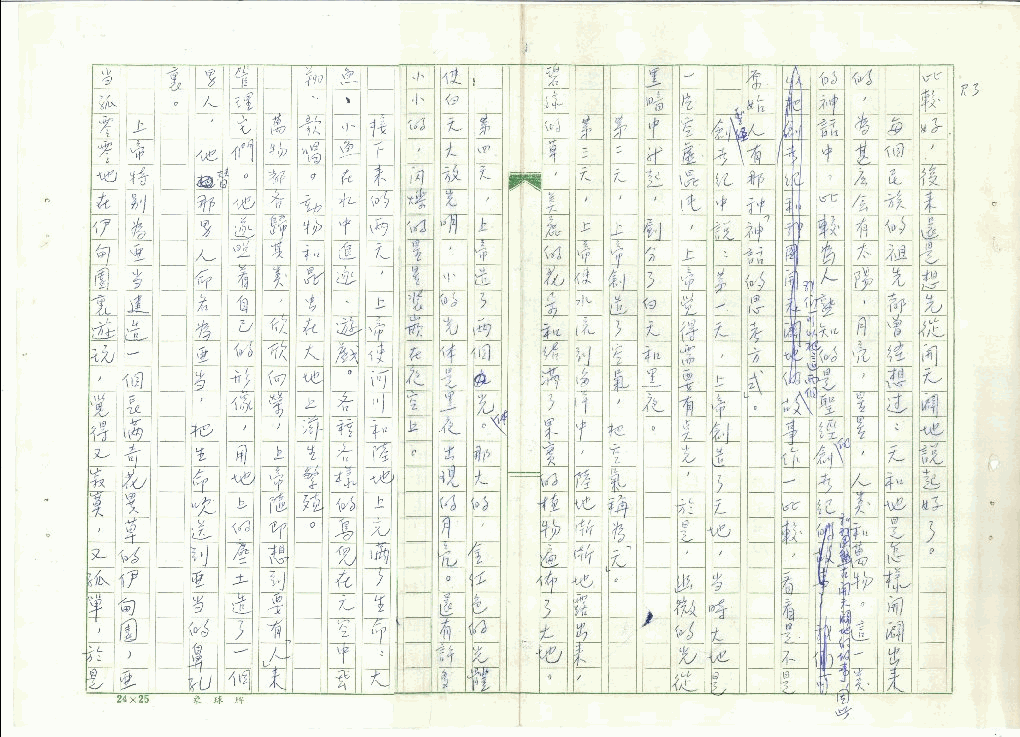 P.3
比較好，後來還是想先從開天闢地說起好了。
每個民族的祖先都曾經想過：天和地是怎樣開闢出來
的，為甚麼会有太陽，月亮，星星，人类和萬物。這一类
的神話中，比較為人熟知的是聖經創世紀
和盤古開天闢地的故事，因此
我們可以把這兩個故事作一比較，看看是不是
原始人有那种「神話的思考方式」。
聖經創世紀中說：第一天，上帝創造了天地，当時大地是
一片空虛混沌，上帝覺得需要有点光，於是，幽微的光從
黑暗中升起，劃分了白天和黑夜。
第二天，上帝創造了空氣，把空氣稱為「天」。
第三天，上帝使水流到海洋中，陸地漸漸地露出來，
碧綠的草，美麗的花朵和結滿了果實的植物遍佈了大地。
第四天，上帝造了兩個光体。那大的，金红色的光體
使白天大放光明，小的光体是黑夜出現的月亮。還有許多
小小的，闪爍的星星裝嵌在夜空上。
接下來的两天，上帝使河川和陸地上充满了生命：大
魚、小魚在水中追逐、遊戲。各種各樣的鳥兒在天空中飛
翔、歌唱。動物和昆虫在大地上滋生繁殖。
萬物都各歸其类，欣欣向榮，上帝隨即想到要有「人」來
管理它們。他逐照着自己的形像，用地上的塵土造了一個
男人，他替那男人命名為亚当，把生命吹送到亚当的鼻孔
裏。
上帝特別為亚当建造一個長滿奇花異草的伊甸園，亚
当孤零零地在伊甸園裏遊玩，覺得又寂寞，又孤單，於是
24×25